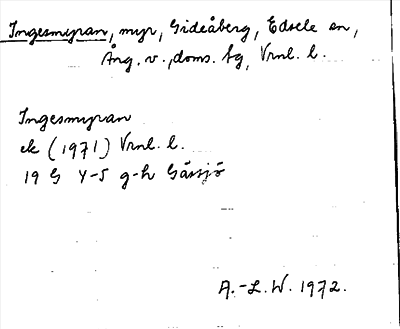 Ingesmyran, myr, Gideåberg, Edsele sn,
Ång. v., doms. bg, Vrnl. l.
Ingesmyran
ek (1971) Vrnl. l.
19 G 4-5 g-h Gåssjö
A.-L. W. 1972.